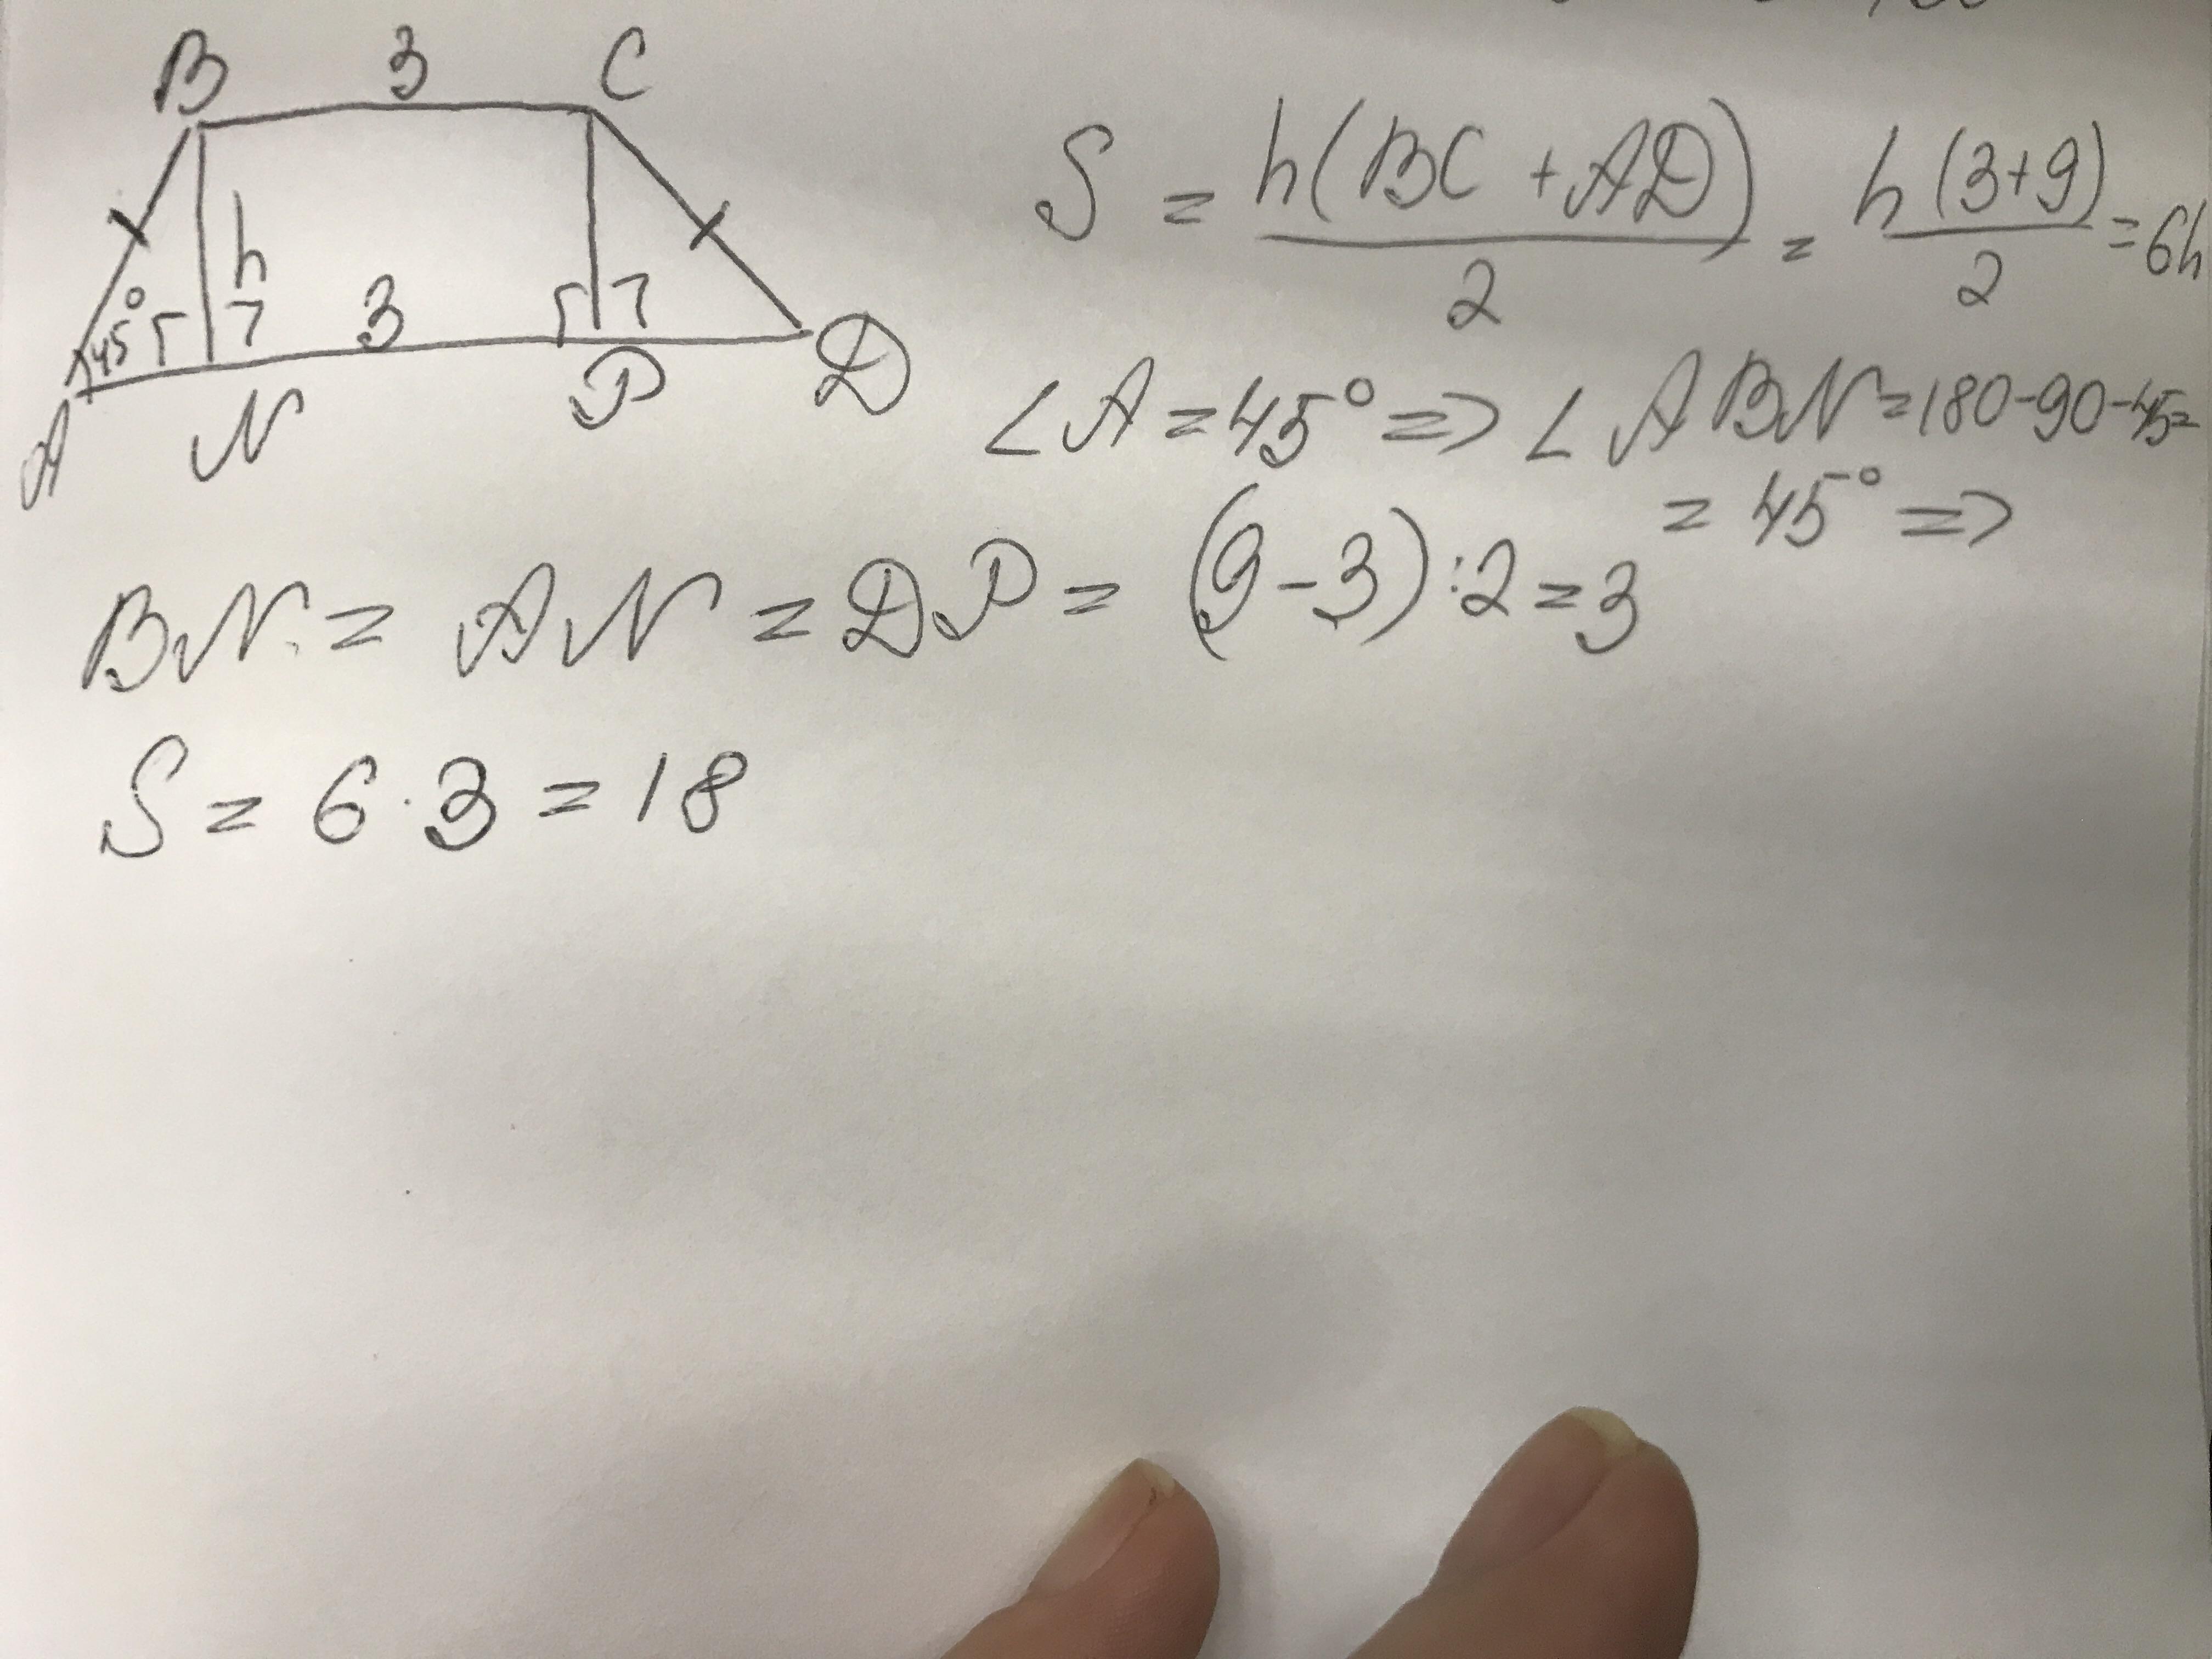 B 3 C
h
45° 3
A N P D
S = h(BC + AD)/2 = h(3+9)/2 = 6h
∠A = 45° => ∠ABN = 180-90-45=
= 45° =>
BN = AN = DP = (9-3):2=3
S = 6·3 = 18